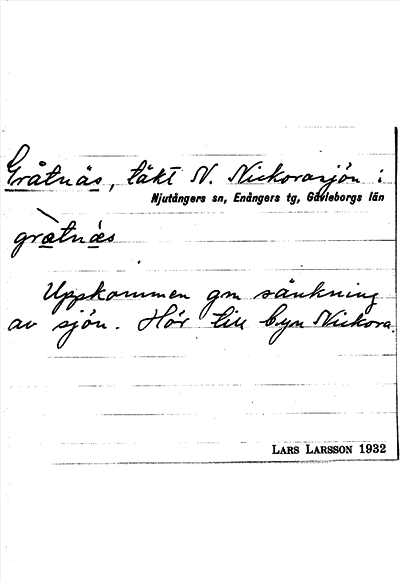 Gråtnäs, täkt N. Nickorasjön i
Njutångers sn, Enångers tg, Gävleborgs län
grætnæs
Uppkommen gm sänkning
av sjön. Hör till byn Nickora.
LARS LARSSON 1932